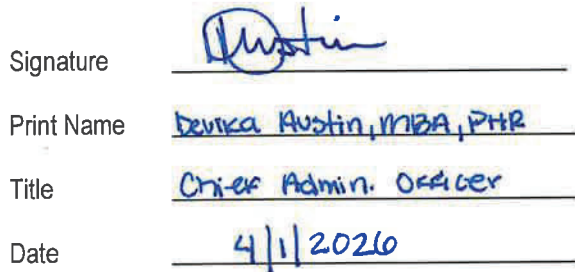 Signature Austin
Print Name Devika Austin, MBA, PHR
Title Chief Admin. Officer
Date 4/1/2026